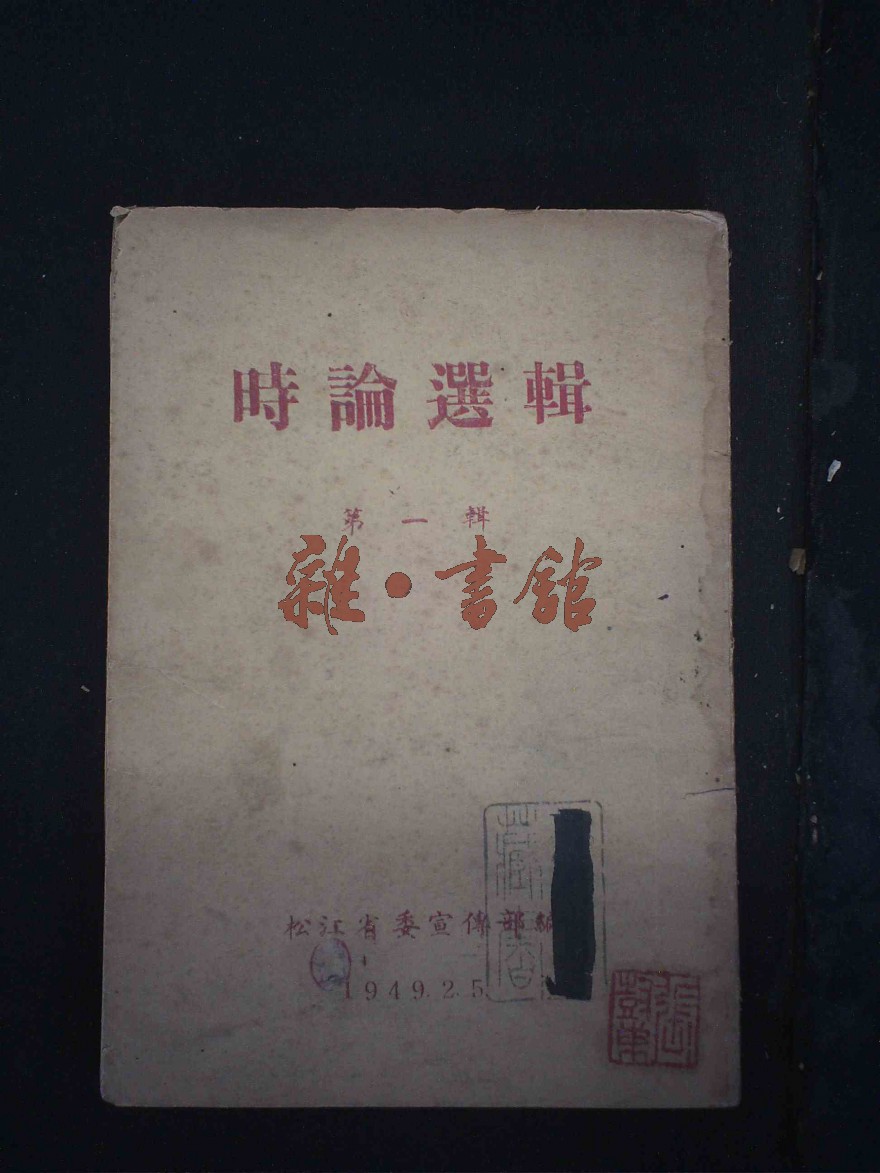 時論選輯
第一輯
雜·書館
松江省委宣傳部編
1949.2.5